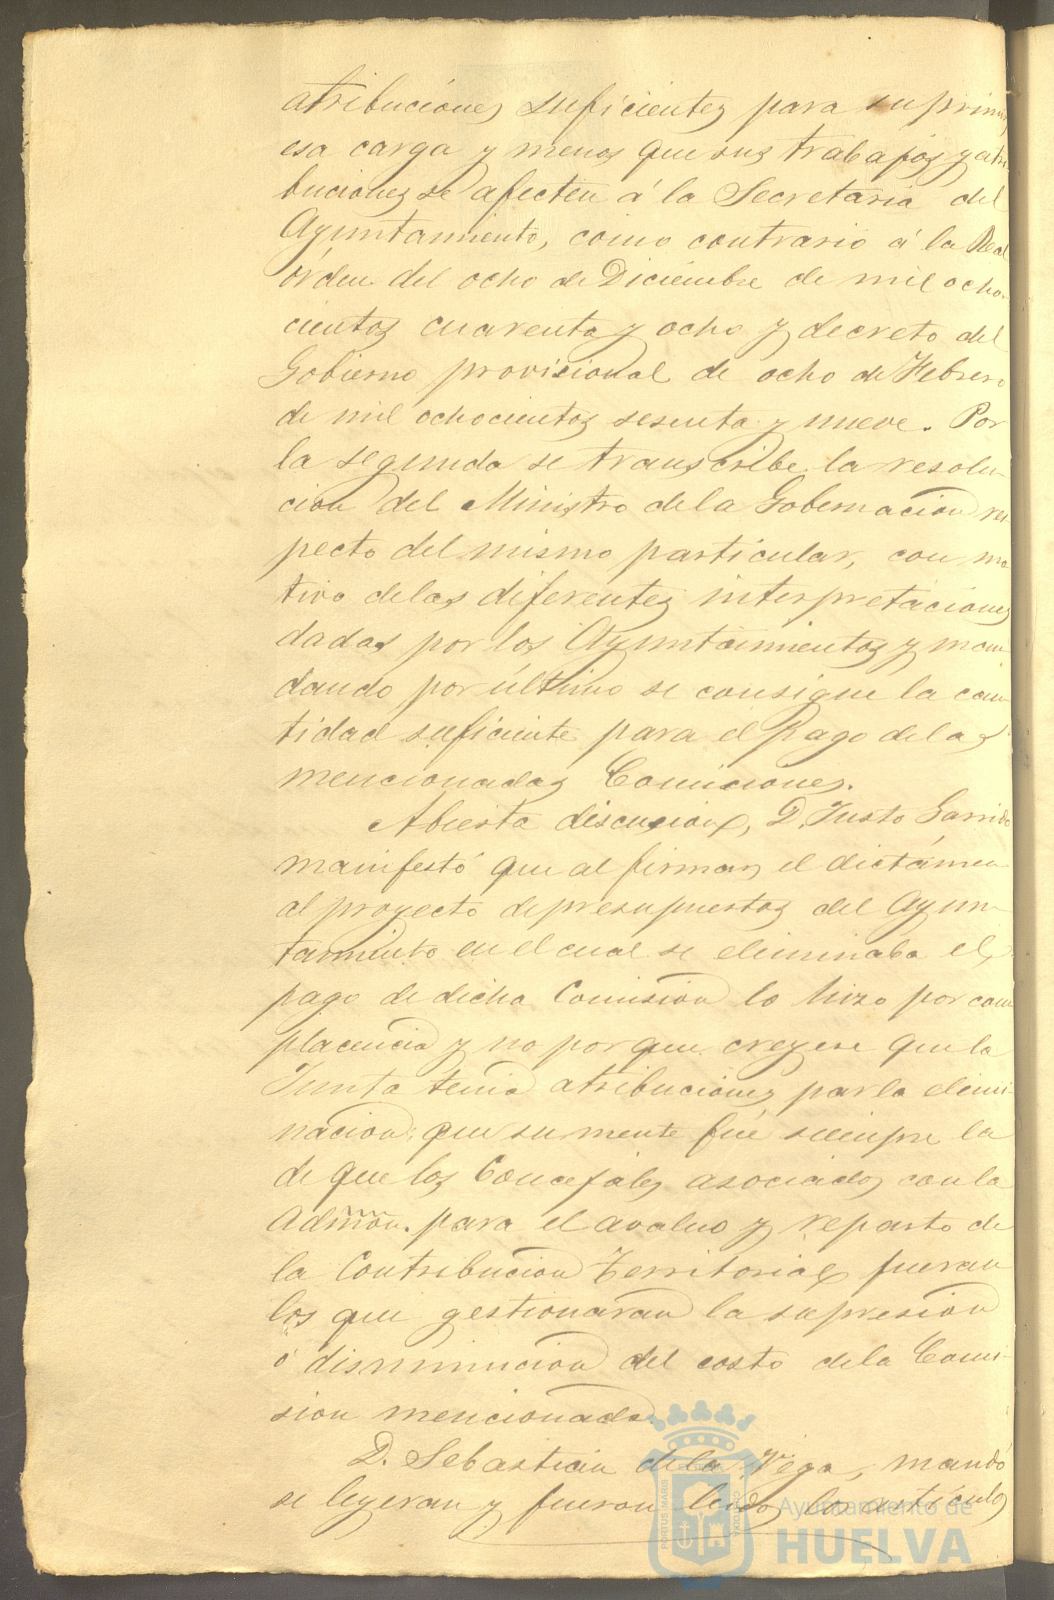 atribuciones suficientes para suprimir
esa carga y menos que sus trabajos y atri-
buciones se afecten á la Secretaria del
Ayuntamiento, como contrario á la Real
órden del ocho de Diciembre de mil ocho-
cientos cuarenta y ocho y decreto del
Gobierno provisional de ocho de Febrero
de mil ochocientos sesenta y nueve. Por
la segunda se transcribe la resolu-
cion del Ministro de la Gobernacion res-
pecto del mismo particular, con mo-
tivo delas diferentes interpretaciones
dadas por los Ayuntamientos y man-
dando por último se consigne la can-
tidad suficiente para el Pago de las
mencionadas Comiciones.
Abierta discucion, D. Justo Garrido
manifestó que al firmar el dictámen
al proyecto de presupuestos del Ayun-
tamiento en el cual se eliminaba el
pago de dicha Comision lo hizo por com
placencia y no por que creyese que la
Junta tenia atribuciones par la elimi-
nacion; que su mente fué siempre la
de que los Concejales asociados con la
Admon. para el avaluo y reparto de
la Contribucion Territorial, fueran
los que gestionaran la supresion
ó disminucion del costo dela Comi-
sion mencionada.
D. Sebastian de la Vega, mandó
se leyeran y fueron leidos los artículos
PORTUS MARIS
ET TERRÆ CUSTODIA
Ayuntamiento de
HUELVA